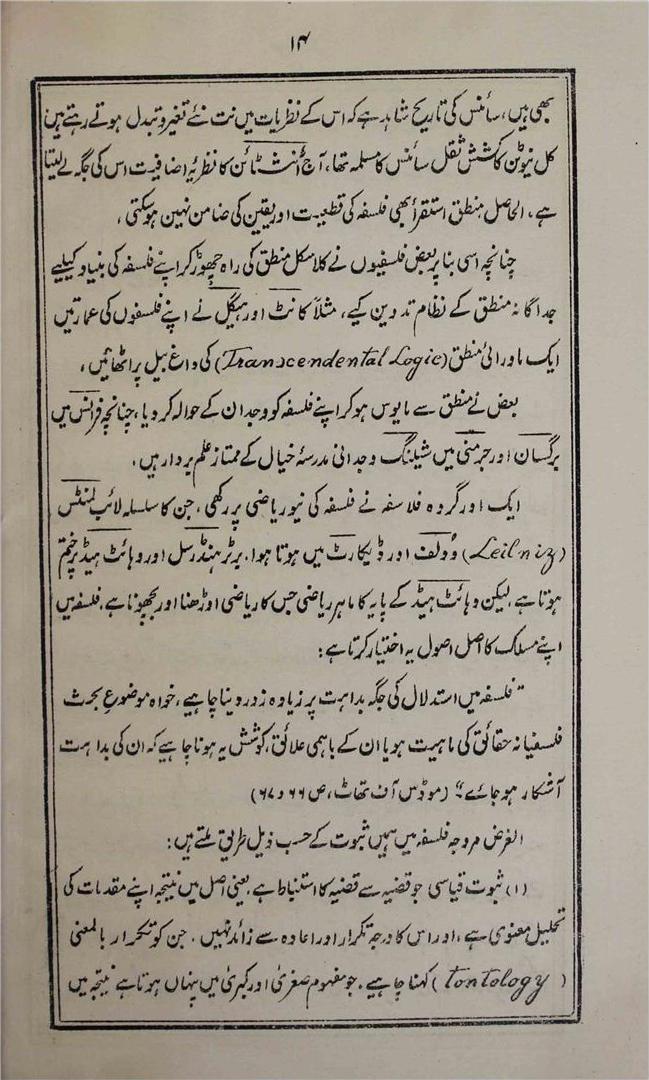 ۱۴
بھی ہیں، سائنس کی تاریخ شاہد ہے کہ اس کے نظریات میں نت نئے تغیر و تبدل ہوتے رہتے ہیں
کل نیوٹن کا کشش ثقل سائنس کا مسلمہ تھا، آج اُنشٹائن کا نظریۂ اضافیت اس کی جگہ لے لیتا
ہے، الحاصل منطق استقرأ بھی فلسفہ کی قطعیت اور یقین کی ضامن نہیں ہو سکتی،
چنانچہ اسی بنا پر بعض فلسفیوں نے کلاسکل منطق کی راہ چھوڑ کر اپنے فلسفہ کی بنیاد کیلیے
جداگانہ منطق کے نظام تدوین کیے، مثلاً کانٹ اور ہیگل نے اپنے فلسفوں کی عمارتیں
ایک ماورائی منطق (Transcendental Logic) کی داغ بیل پر اٹھائیں،
بعض نے منطق سے مایوس ہو کر اپنے فلسفہ کو وجدان کے حوالہ کر دیا، چنانچہ فرانس میں
برگسان اور جرمنی میں شیلنگ وجدانی مدرسۂ خیال کے ممتاز علم بردار ہیں.
ایک اور گروہ فلاسفہ نے فلسفہ کی نیو ریاضی پر رکھی، جن کا سلسلہ لائب نٹس
(Leibniz) وُولف اور ڈیکارٹ میں ہوتا ہوا. برٹرنڈ رسل اور وہائٹ ہیڈ پر ختم
ہوتا ہے، لیکن وہائٹ ہیڈ کے پایہ کا ماہر ریاضی جس کا ریاضی اوڑھنا اور بچھونا ہے، فلسفہ میں
اپنے مسلک کا اصل اصول یہ اختیار کرتا ہے:
"فلسفہ میں استدلال کی جگہ بداہت پر زیادہ زور دینا چاہیے، خواہ موضوع بحث
فلسفیانہ حقائق کی ماہیت ہو یا ان کے باہمی علائق، کوشش یہ ہونا چاہیے کہ ان کی بداہت
آشکار ہو جائے۔" (موڈس آف تھاٹ، ص ۶۶ و ۶۷)
الغرض مروجہ فلسفہ میں ہمیں ثبوت کے حسب ذیل طریق ملتے ہیں:
(۱) ثبوت قیاسی جو قضیہ سے قضیہ کا استنباط ہے، یعنی اصل میں نتیجہ اپنے مقدمات کی
تحلیل معنوی ہے، اور اس کا درجہ تکرار اور اعادہ سے زائد نہیں. جن کو تکرار بالمعنی
(tontology) کہنا چاہیے. جو مفہوم صغریٰ اور کبریٰ میں پنہاں ہوتا ہے نتیجہ میں